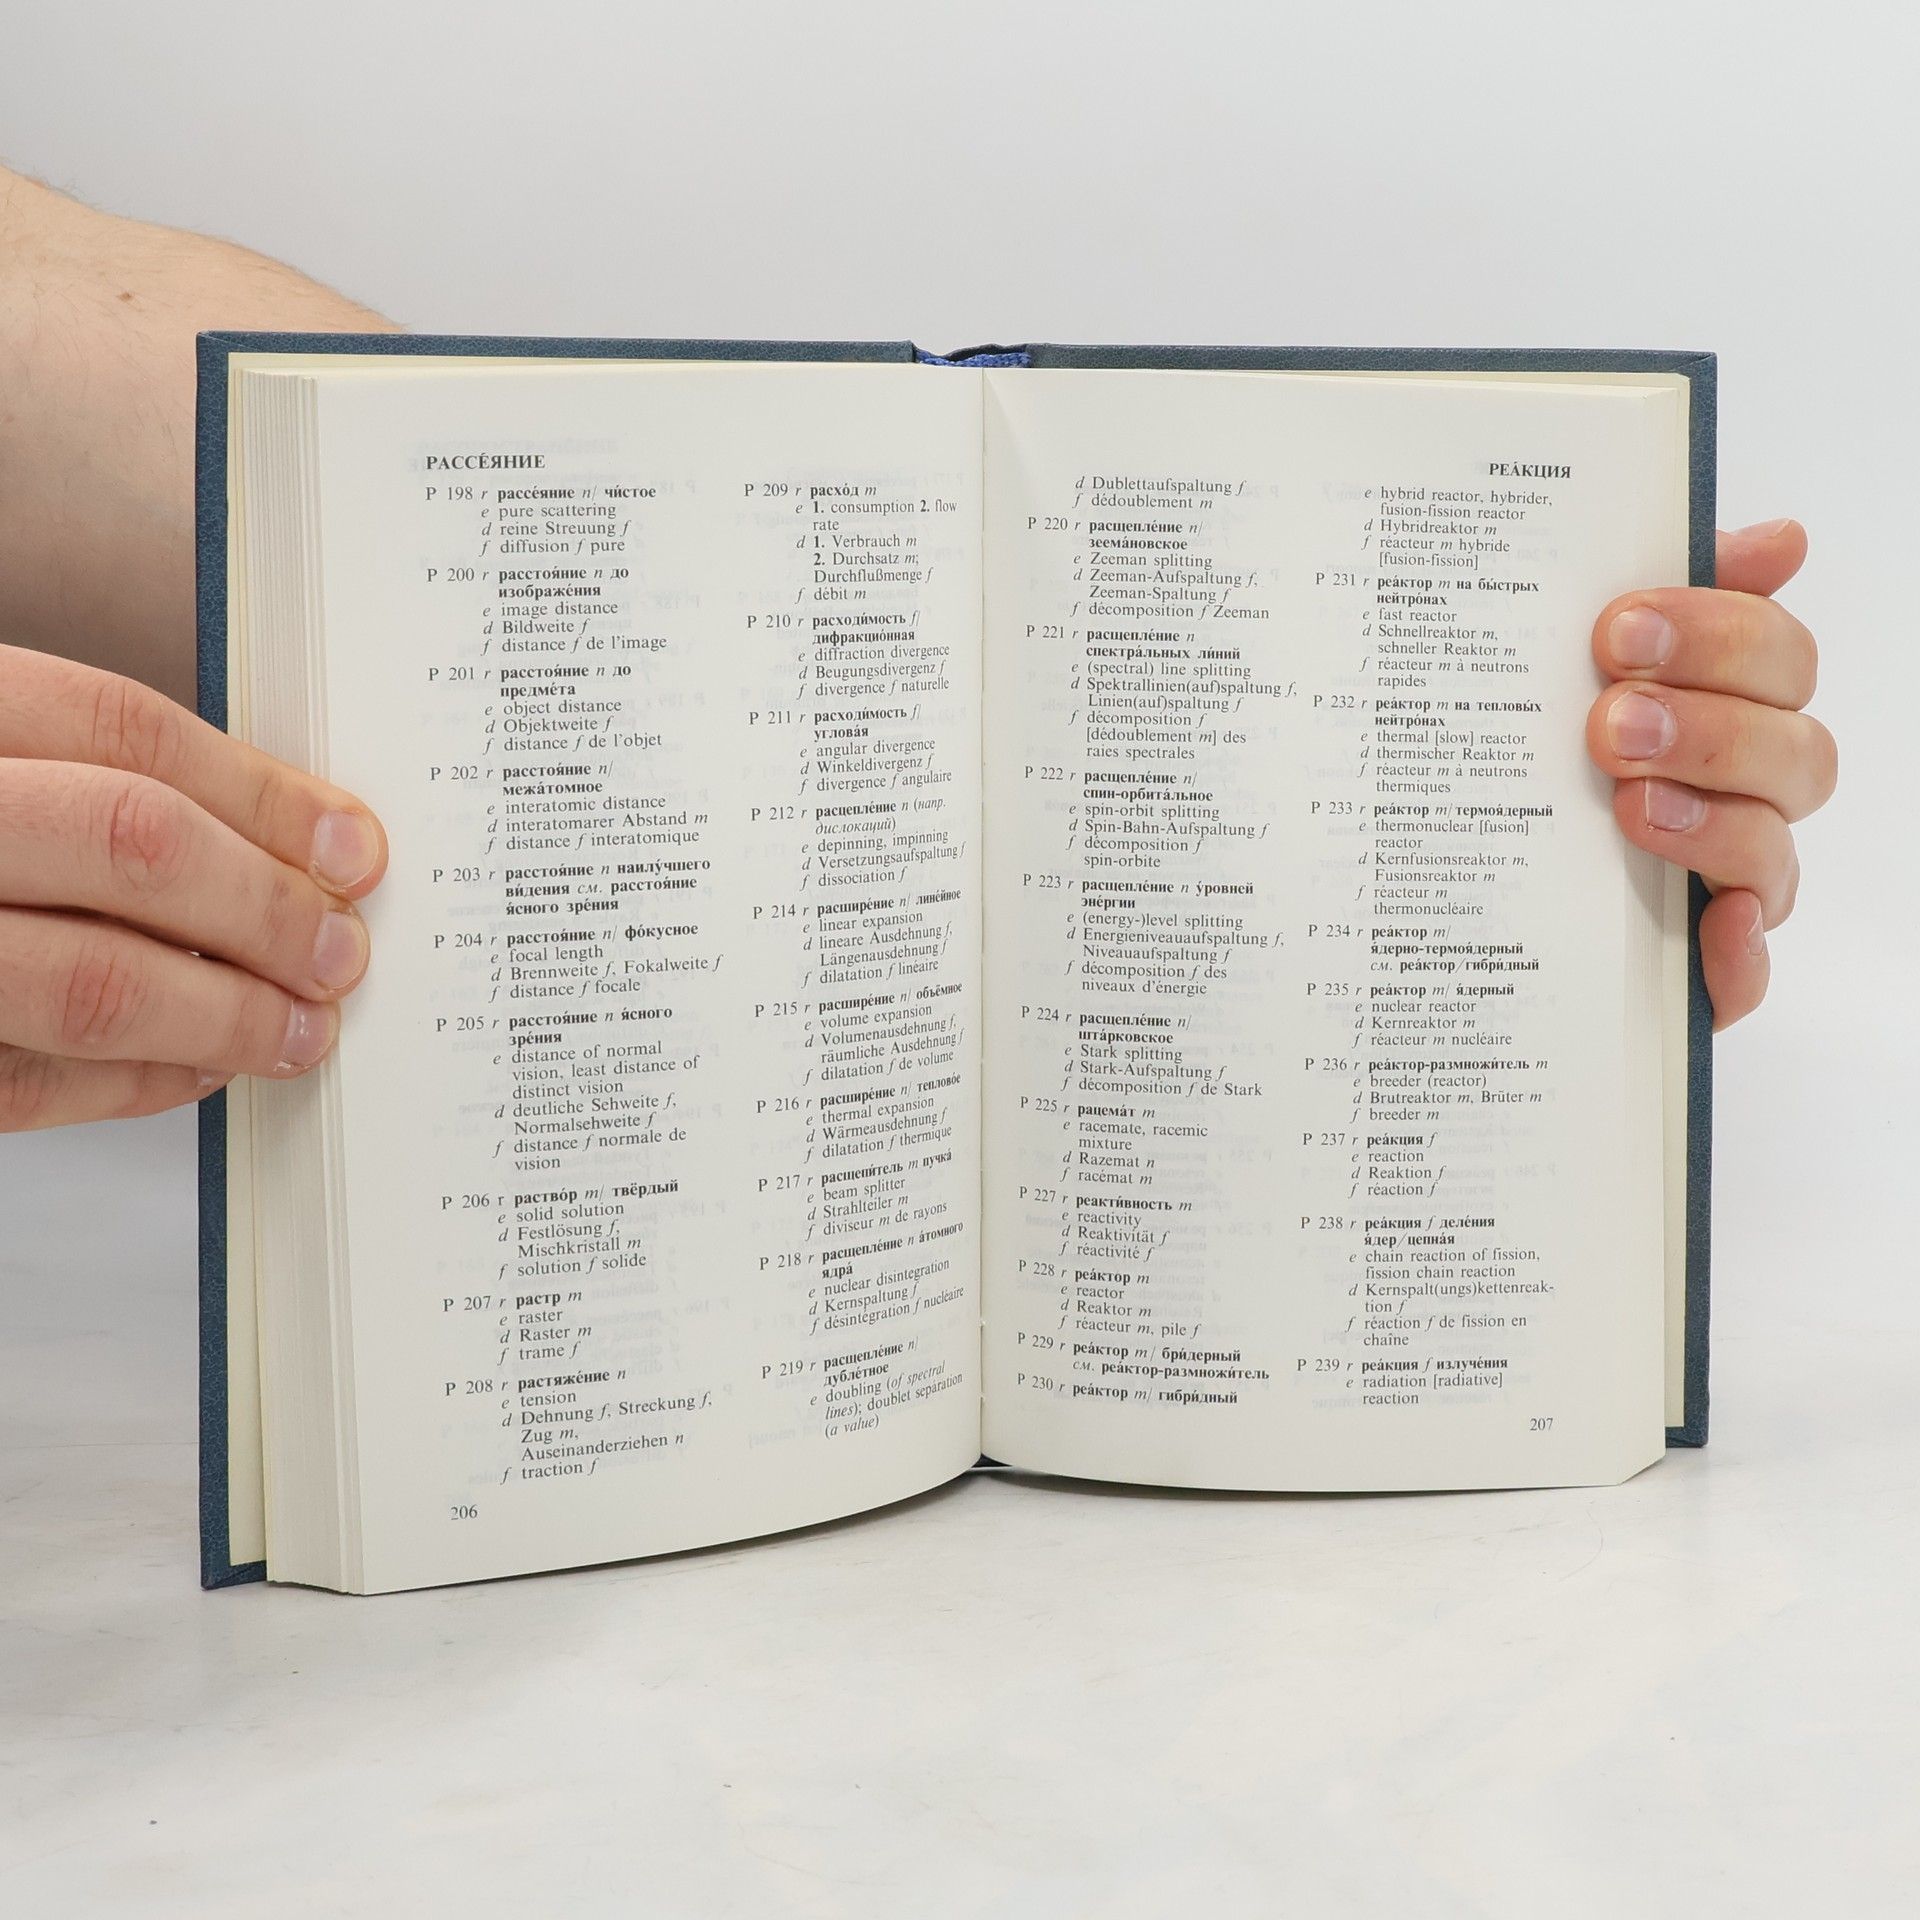 РАССЕ́ЯНИЕ
P 198 r рассе́яние n/ чи́стое
e pure scattering
d reine Streuung f
f diffusion f pure
P 200 r расстоя́ние n до
изображе́ния
e image distance
d Bildweite f
f distance f de l'image
P 201 r расстоя́ние n до
предме́та
e object distance
d Objektweite f
f distance f de l'objet
P 202 r расстоя́ние n/
межа́томное
e interatomic distance
d interatomarer Abstand m
f distance f interatomique
P 203 r расстоя́ние n наилу́чшего
ви́дения см. расстоя́ние
я́сного зре́ния
P 204 r расстоя́ние n/ фо́кусное
e focal length
d Brennweite f, Fokalweite f
f distance f focale
P 205 r расстоя́ние n я́сного
зре́ния
e distance of normal
vision, least distance of
distinct vision
d deutliche Sehweite f,
Normalsehweite f
f distance f normale de
vision
P 206 r раство́р m/ твёрдый
e solid solution
d Festlösung f,
Mischkristall m
f solution f solide
P 207 r растр m
e raster
d Raster m
f trame f
P 208 r растяже́ние n
e tension
d Dehnung f, Streckung f,
Zug m,
Auseinanderziehen n
f traction f
206
P 209 r расхо́д m
e 1. consumption 2. flow
rate
d 1. Verbrauch m
2. Durchsatz m;
Durchflußmenge f
f débit m
P 210 r расходи́мость f/
дифракцио́нная
e diffraction divergence
d Beugungsdivergenz f
f divergence f naturelle
P 211 r расходи́мость f/
углова́я
e angular divergence
d Winkeldivergenz f
f divergence f angulaire
P 212 r расцепле́ние n (напр.
дислокаций)
e depinning, impinning
d Versetzungsaufspaltung f
f dissociation f
P 214 r расшире́ние n/ лине́йное
e linear expansion
d lineare Ausdehnung f,
Längenausdehnung f
f dilatation f linéaire
P 215 r расшире́ние n/ объёмное
e volume expansion
d Volumenausdehnung f,
räumliche Ausdehnung f
f dilatation f de volume
P 216 r расшире́ние n/ теплово́е
e thermal expansion
d Wärmeausdehnung f
f dilatation f thermique
P 217 r расщепи́тель m пучка́
e beam splitter
d Strahlteiler m
f diviseur m de rayons
P 218 r расщепле́ние n а́томного
ядра́
e nuclear disintegration
d Kernspaltung f
f désintégration f nucléaire
P 219 r расщепле́ние n/
дубле́тное
e doubling (of spectral
lines); doublet separation
(a value)
РЕА́КЦИЯ
d Dublettaufspaltung f
f dédoublement m
P 220 r расщепле́ние n/
зеема́новское
e Zeeman splitting
d Zeeman-Aufspaltung f,
Zeeman-Spaltung f
f décomposition f Zeeman
P 221 r расщепле́ние n
спектра́льных ли́ний
e (spectral) line splitting
d Spektrallinien(auf)spaltung f,
Linien(auf)spaltung f
f décomposition f
[dédoublement m] des
raies spectrales
P 222 r расщепле́ние n/
спин-орбита́льное
e spin-orbit splitting
d Spin-Bahn-Aufspaltung f
f décomposition f
spin-orbite
P 223 r расщепле́ние n у́ровней
эне́ргии
e (energy-)level splitting
d Energieniveauaufspaltung f,
Niveauaufspaltung f
f décomposition f des
niveaux d'énergie
P 224 r расщепле́ние n/
шта́рковское
e Stark splitting
d Stark-Aufspaltung f
f décomposition f de Stark
P 225 r рацема́т m
e racemate, racemic
mixture
d Razemat n
f racémat m
P 227 r реакти́вность m
e reactivity
d Reaktivität f
f réactivité f
P 228 r реа́ктор m
e reactor
d Reaktor m
f réacteur m, pile f
P 229 r реа́ктор m/ бри́дерный
см. реа́ктор-размножи́тель
P 230 r реа́ктор m/ гибри́дный
e hybrid reactor, hybrider,
fusion-fission reactor
d Hybridreaktor m
f réacteur m hybride
[fusion-fission]
P 231 r реа́ктор m на бы́стрых
нейтро́нах
e fast reactor
d Schnellreaktor m,
schneller Reaktor m
f réacteur m à neutrons
rapides
P 232 r реа́ктор m на тепловы́х
нейтро́нах
e thermal [slow] reactor
d thermischer Reaktor m
f réacteur m à neutrons
thermiques
P 233 r реа́ктор m/ термоя́дерный
e thermonuclear [fusion]
reactor
d Kernfusionsreaktor m,
Fusionsreaktor m
f réacteur m
thermonucléaire
P 234 r реа́ктор m/
я́дерно-термоя́дерный
см. реа́ктор/гибри́дный
P 235 r реа́ктор m/ я́дерный
e nuclear reactor
d Kernreaktor m
f réacteur m nucléaire
P 236 r реа́ктор-размножи́тель m
e breeder (reactor)
d Brutreaktor m, Brüter m
f breeder m
P 237 r реа́кция f
e reaction
d Reaktion f
f réaction f
P 238 r реа́кция f деле́ния
я́дер/цепна́я
e chain reaction of fission,
fission chain reaction
d Kernspalt(ungs)kettenreak-
tion f
f réaction f de fission en
chaîne
P 239 r реа́кция f излуче́ния
e radiation [radiative]
reaction
207